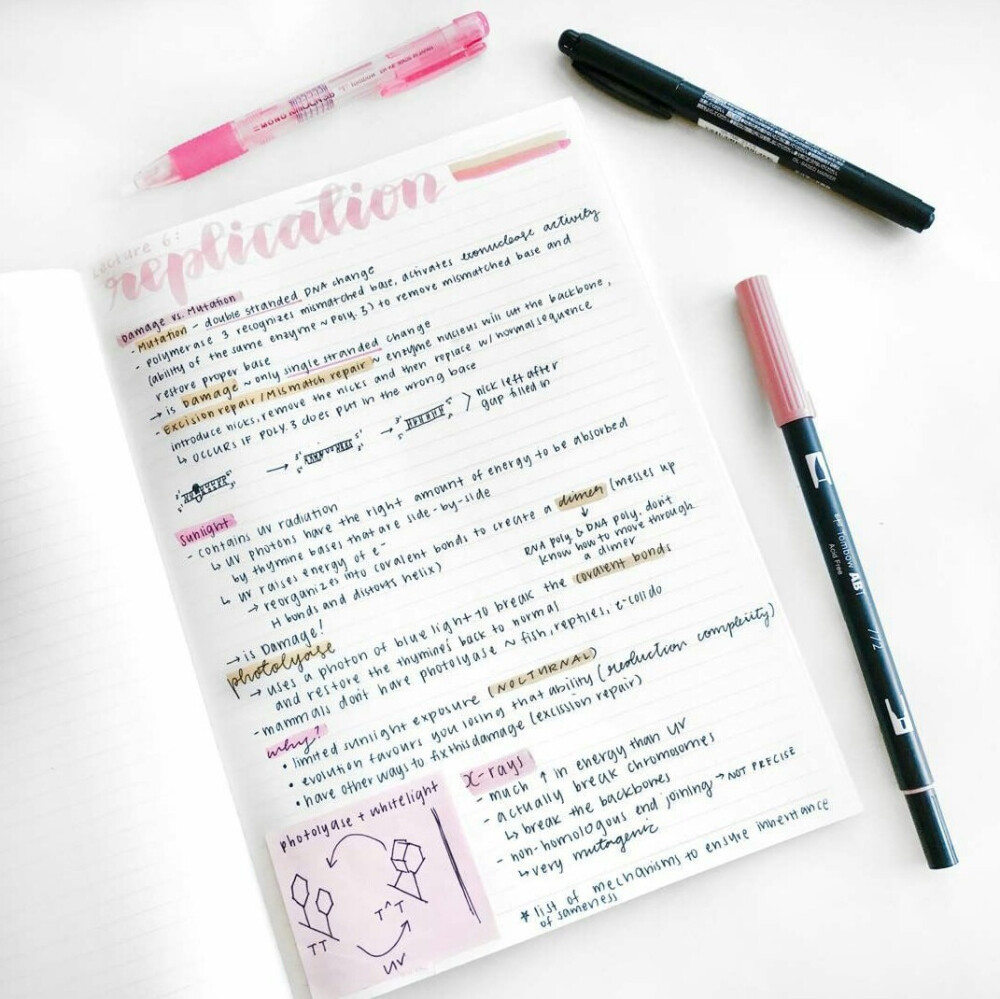 Lecture 6:
replication
Damage vs. Mutation
- Mutation - double stranded DNA change
- Polymerase 3 recognizes mismatched base, activates exonuclease activity
(ability of the same enzyme ~ Poly. 3) to remove mismatched base and
restore proper base
→ is Damage ~ only single stranded change
- Excision repair/Mismatch repair ~ enzyme nucleus will cut the backbone,
introduce nicks, remove the nicks and then replace w/ normal sequence
↳ OCCURS IF POLY. 3 does put in the wrong base
→ → > nick left after
gap filled in
3' 5' 5' 3'
Sunlight
- contains UV radiation
↳ UV photons have the right amount of energy to be absorbed
by thymine bases that are side-by-side
↳ UV raises energy of e-
→ reorganizes into covalent bonds to create a dimer (messes up
H bonds and distorts helix)
↓
RNA poly & DNA poly. don't
know how to move through
a dimer
→ is Damage!
photolyase
→ uses a photon of blue light to break the covalent bonds
and restore the thymines back to normal
- mammals don't have photolyase ~ fish, reptiles, e-coli do
why?
• limited sunlight exposure (NOCTURNAL)
• evolution favours you losing that ability (reduction complexity)
• have other ways to fix this damage (excission repair)
photolyase + whitelight
T^T
TT
UV
x-rays
- much ↑ in energy than UV
- actually break chromosomes
↳ break the backbones
- non-homologous end joining → NOT PRECISE
↳ very mutagenic
* list of mechanisms to ensure inheritance
of sameness
MONO
Tombow ABT
Acid Free
772